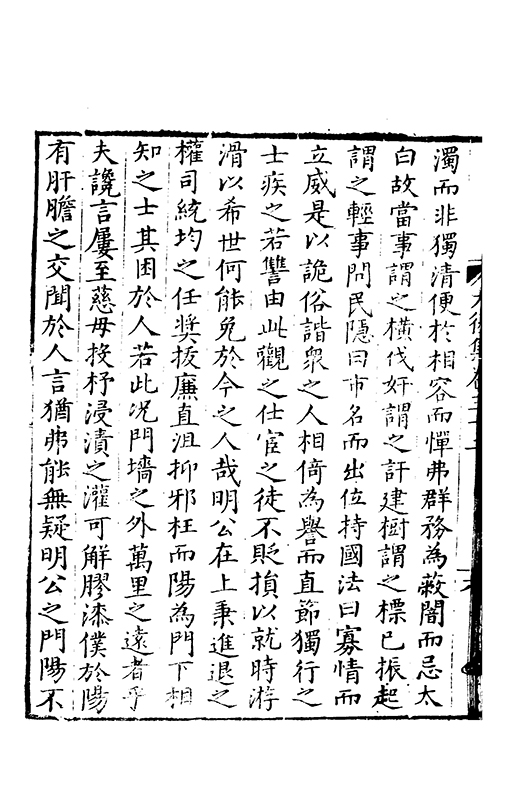 濁而非獨清便於相容而憚弗群務為蔽闇而忌太
白故當事謂之橫伐奸謂之訐建樹謂之標已振起
謂之輕事問民隱曰市名而出位持國法曰寡情而
立威是以詭俗諧衆之人相倚為譽而直節獨行之
士疾之若讐由此觀之仕宦之徒不貶損以就時游
滑以希世何能免於今之人哉明公在上秉進退之
權司統均之任奬拔廉直沮抑邪枉而陽為門下相
知之士其困於人若此况門墻之外萬里之遠者乎
夫讒言屢至慈母投杼浸漬之灌可解膠漆僕於陽
有肝膽之交聞於人言猶弗能無疑明公之門陽不